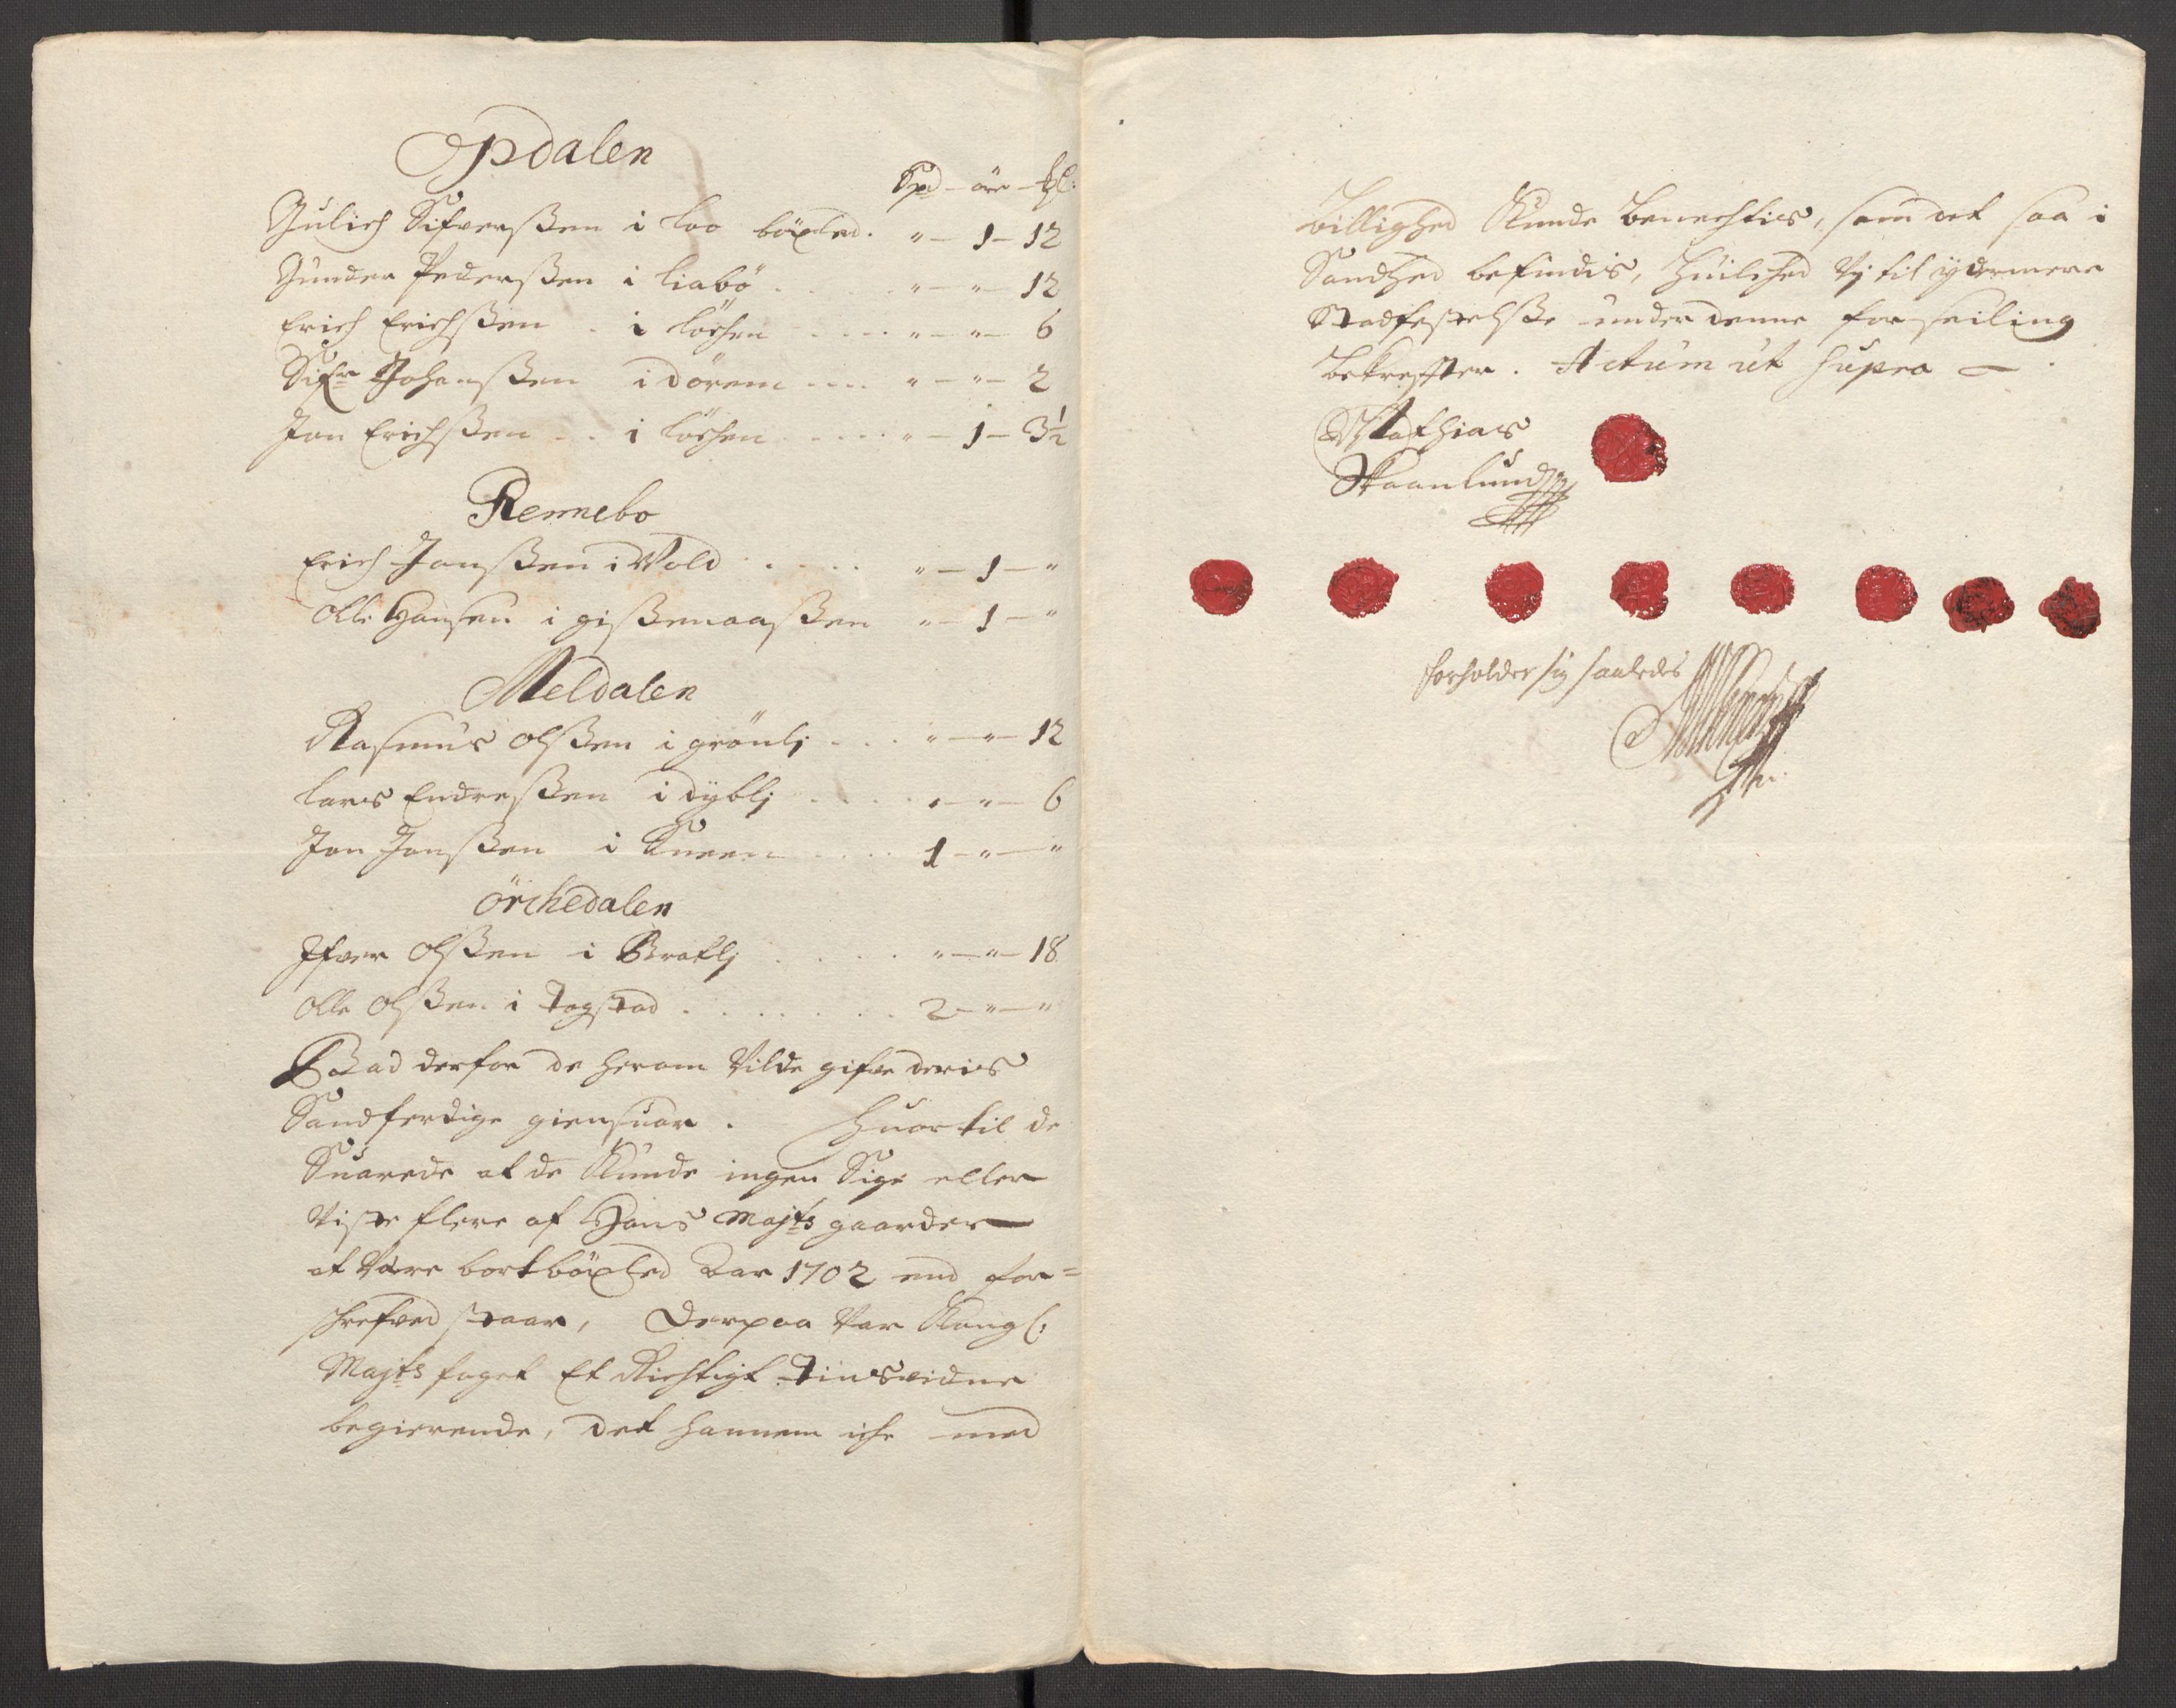 Opdalen
Spd – öre – ßl:
Gulich Sifverßen i Loo böxled. " – 1 – 12
Gunder Pederßen i Liabö . . . . . " – " – 12
Erich Erichßen . i Löchen . . . . " – " – 6
Sifr Johanßen i dörem . . . . " – " – 2
Jon Erichßen . . i Löchen . . . . . " – 1 – 3½
Rennebo
Erich Janßen i Vold . . . . . " – 1 – "
Olle Hansen i gißenaaßen " – 1 – "
Meldalen
Rasmus Olßen i grönlj . . . " – " – 12
Lars Endreßen i dyblj . . . . " – " – 6
Jon Jonßen i Kueen . . . . 1 – " – "
Örchedalen
Ifver Olßen i Bratlj . . . . . " – " – 18
Olle Olßen i Fogstad . . . . . . . 2 – " – "
Bad derfor de herom Vilde gifve deris
Sandferdige giensuar . Huortil de
Suarede at de Kunde ingen Sige eller
Viste flere af Hans Majts gaarder
at Være bortböxled Aar 1702 end for=
skrefved staar, Derpaa Var Kongl:
Majts foget Et Richtigt Tingsvidne
begierende, det hannem iche med
billighed Kunde Benechtis, som det saa i
Sandhed befindis, Huilched Vj til ydermere
Stadfestelße under denne forseiling
bekreffter. Actum ut supra –
Mathias
Skaanlund
forholder sig saaledes